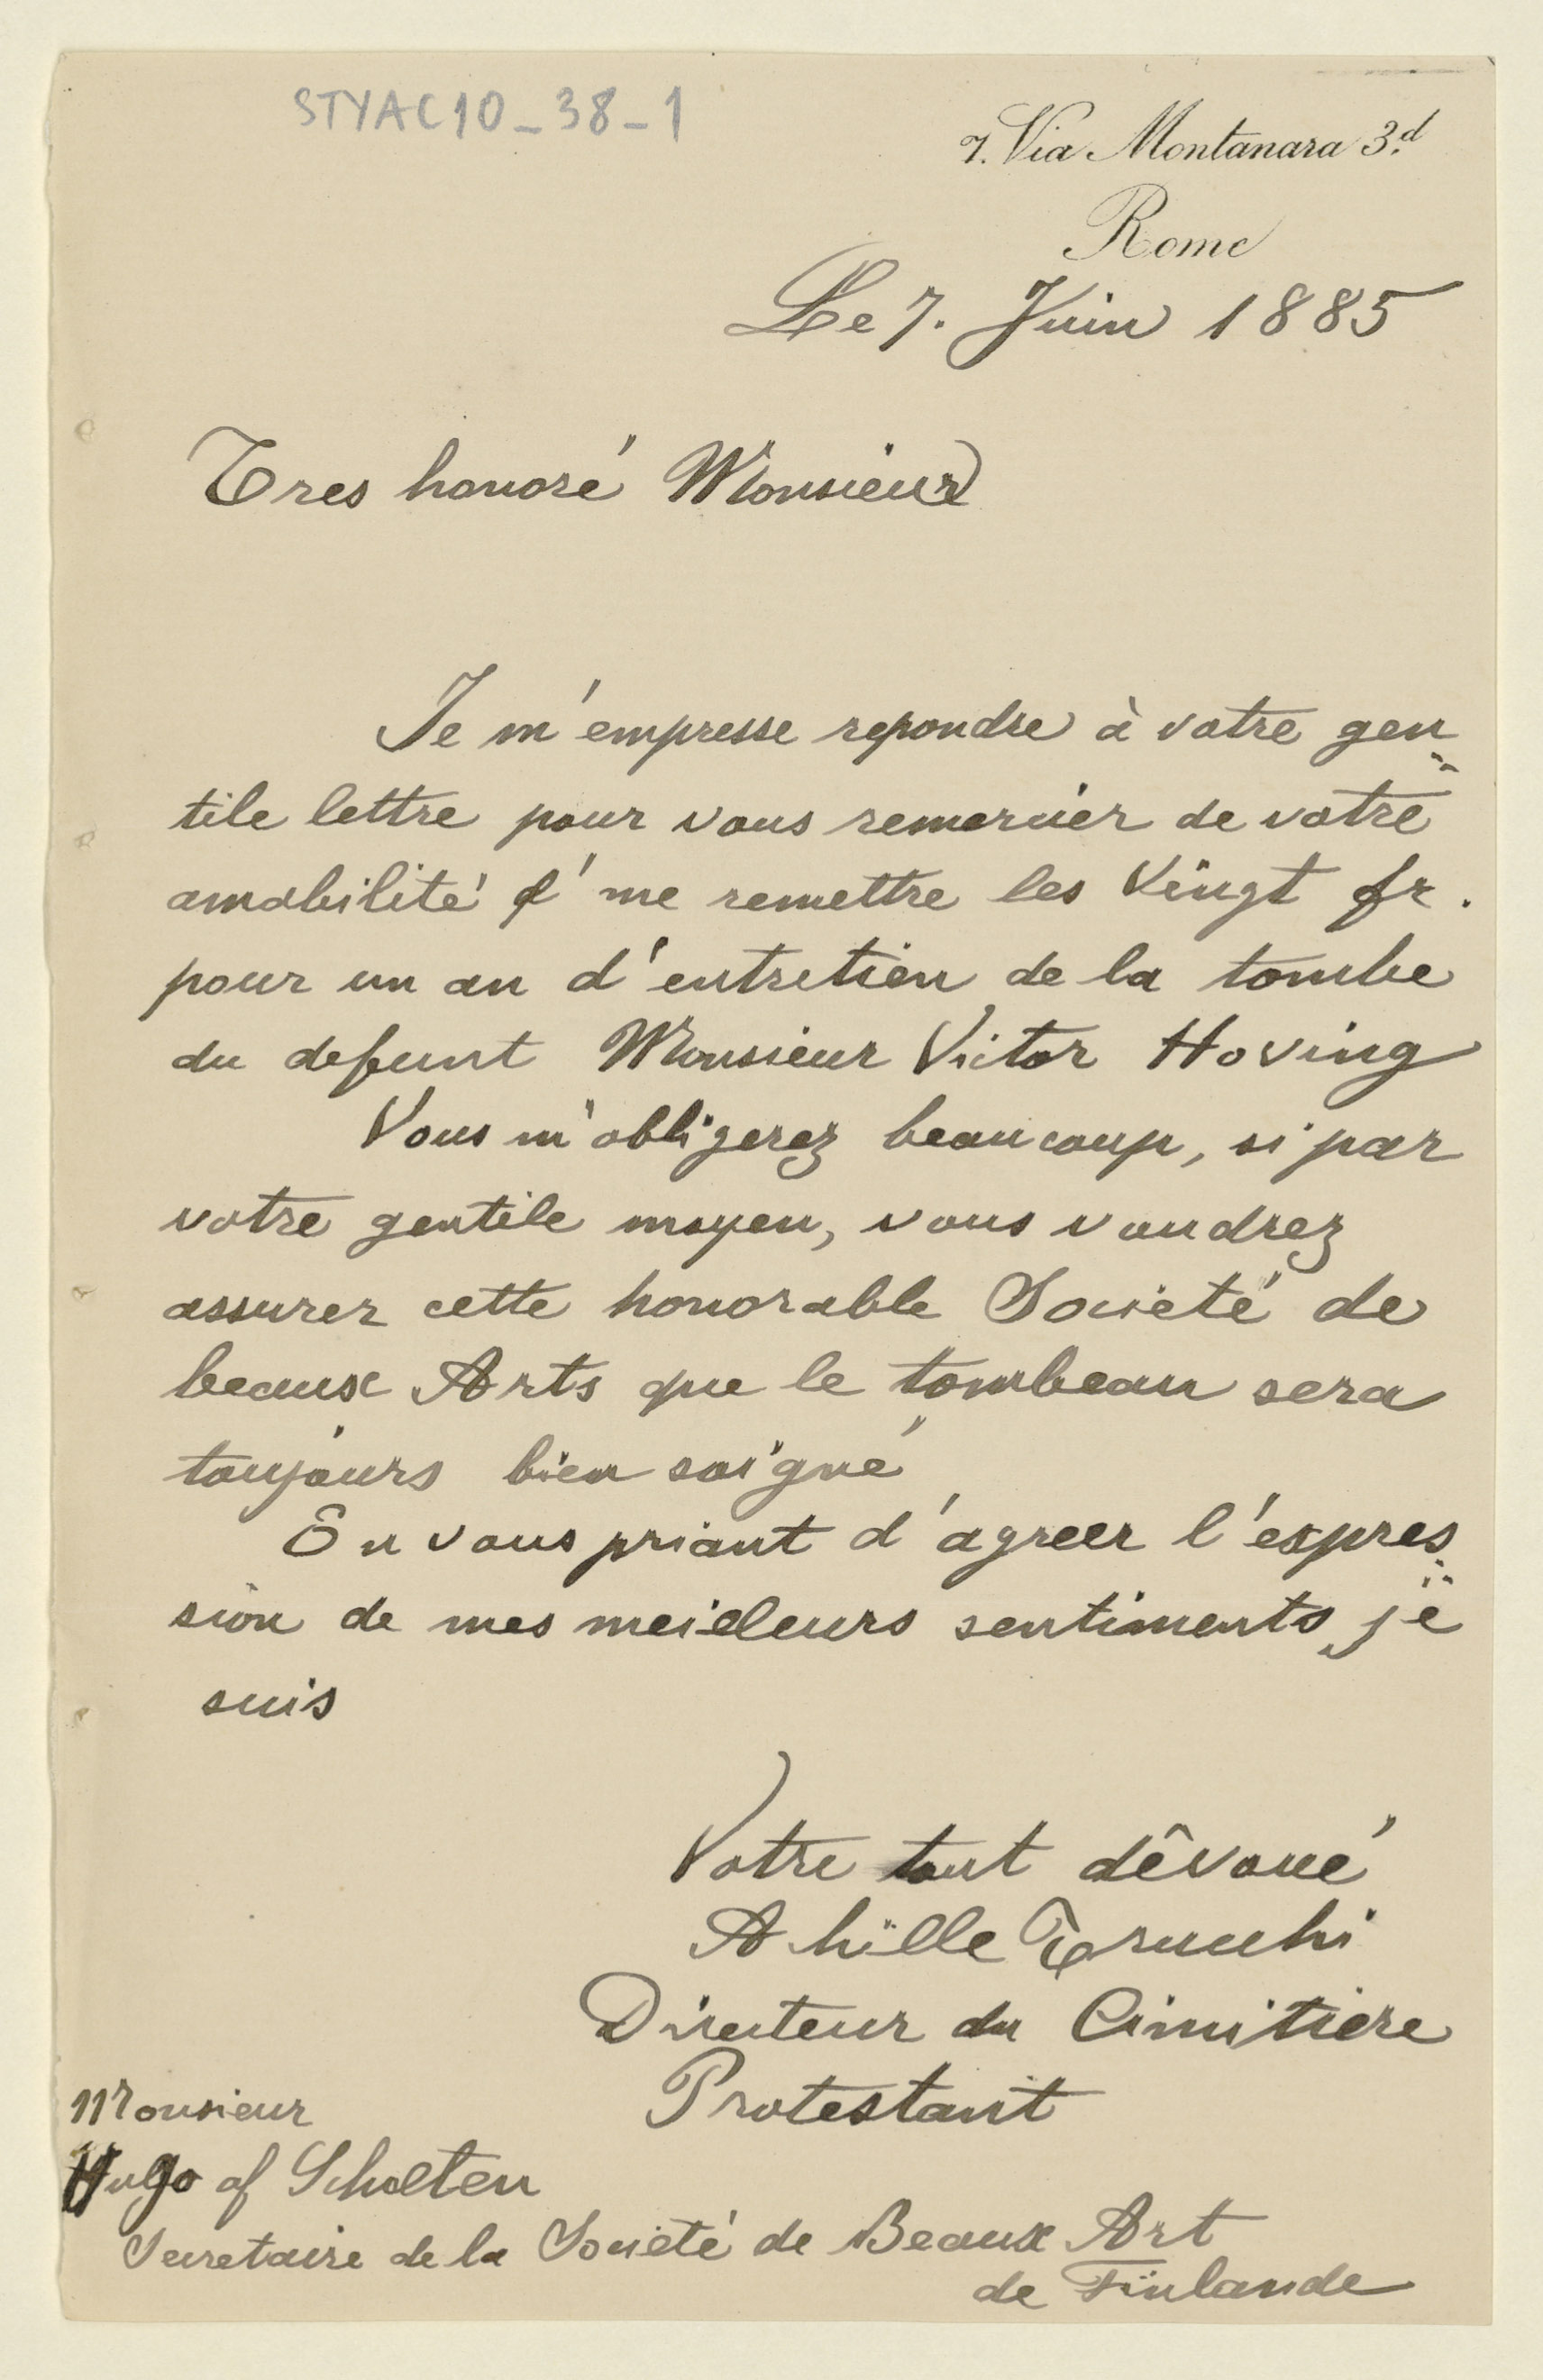 STYAC10_38_1
7. Via Montanara 3.d
Rome
Le 7. Juin 1885
Tres honoré Monsieur
Je m'empresse repondre à votre gen
tile lettre pour vous remercier de votre
amabilité d' me remettre les Vingt fr.
pour un an d'entretien de la tombe
du defunt Monsieur Victor Hoving
Vous m'obligerez beaucoup, si par
votre gentile moyen, vous voudrez
assurer cette honorable Societé de
beaux Arts que le tombeau sera
toujours bien soigné
En vous priant d'agreer l'expres
sion de mes meilleurs sentiments, je
suis
Votre tout dêvoué
Ahille Trucchi
Directeur du Cimitiere
Protestant
Monsieur
Hugo af Scholten
Secretaire de la Societé de Beaux Art
de Finlande